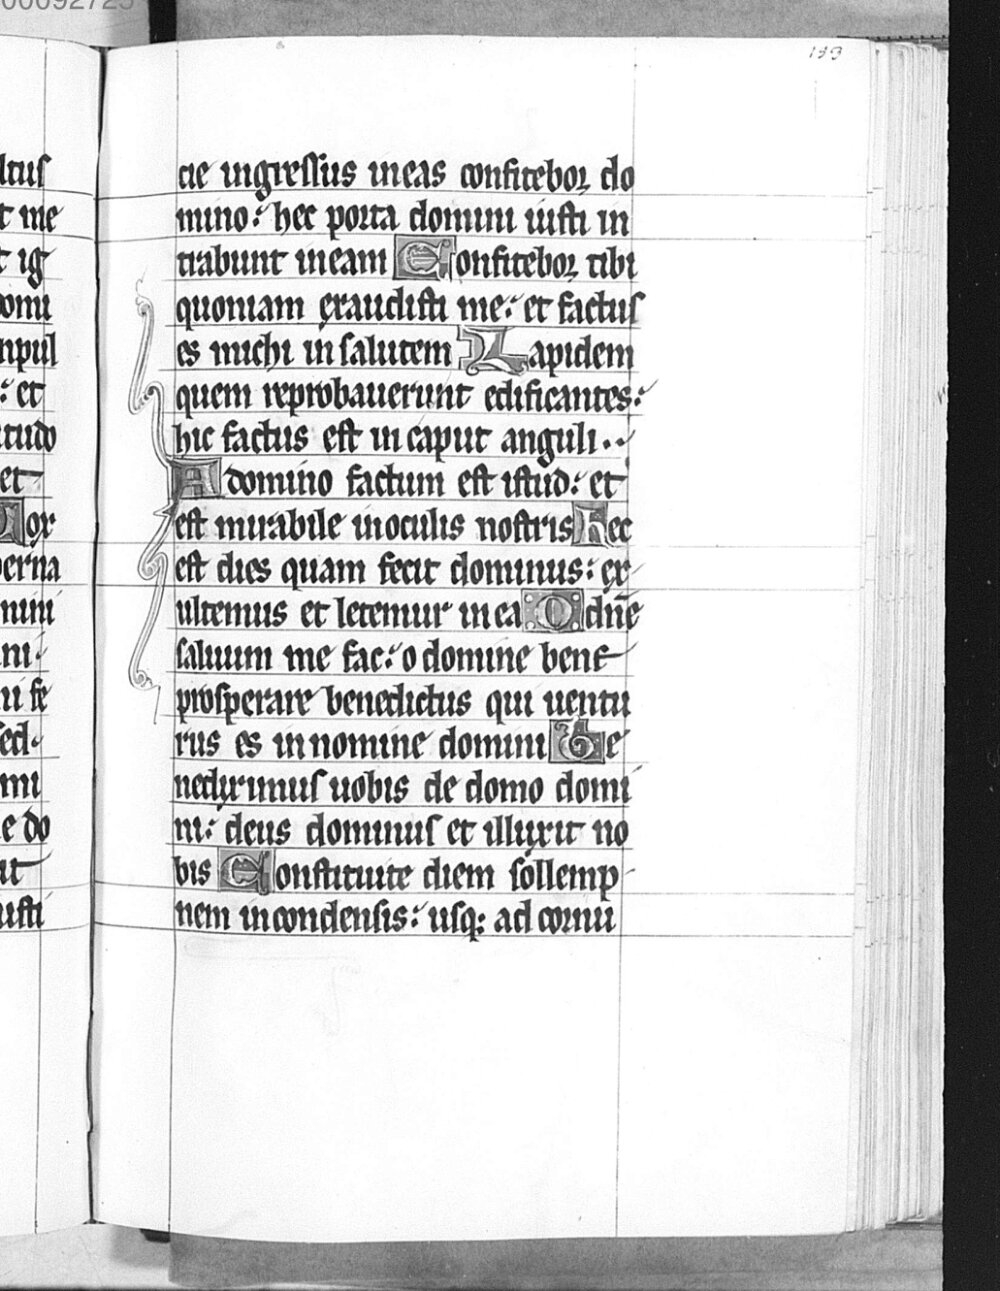 00092725
133
ltus
t me
t ig
omi
npul
: et
itudo
et
Cor
perna
mini
ni.
ui fe
sed.
mi
e do
it
iusti
cie ingressus in eas confitebor do
mino: hec porta domini iusti in
trabunt in eam Confitebor tibi
quoniam exaudisti me: et factus
es michi in salutem Lapidem
quem reprobauerunt edificantes:
hic factus est in caput anguli.
A domino factum est istud: et
est mirabile in oculis nostris Hec
est dies quam fecit dominus: ex
ultemus et letemur in ea O dn̄e
saluum me fac: o domine bene
prosperare benedictus qui uentu
rus es in nomine domini Be
nediximus uobis de domo domi
ni: deus dominus et illuxit no
bis Constituite diem sollemp
nem in condensis: usq: ad cornu